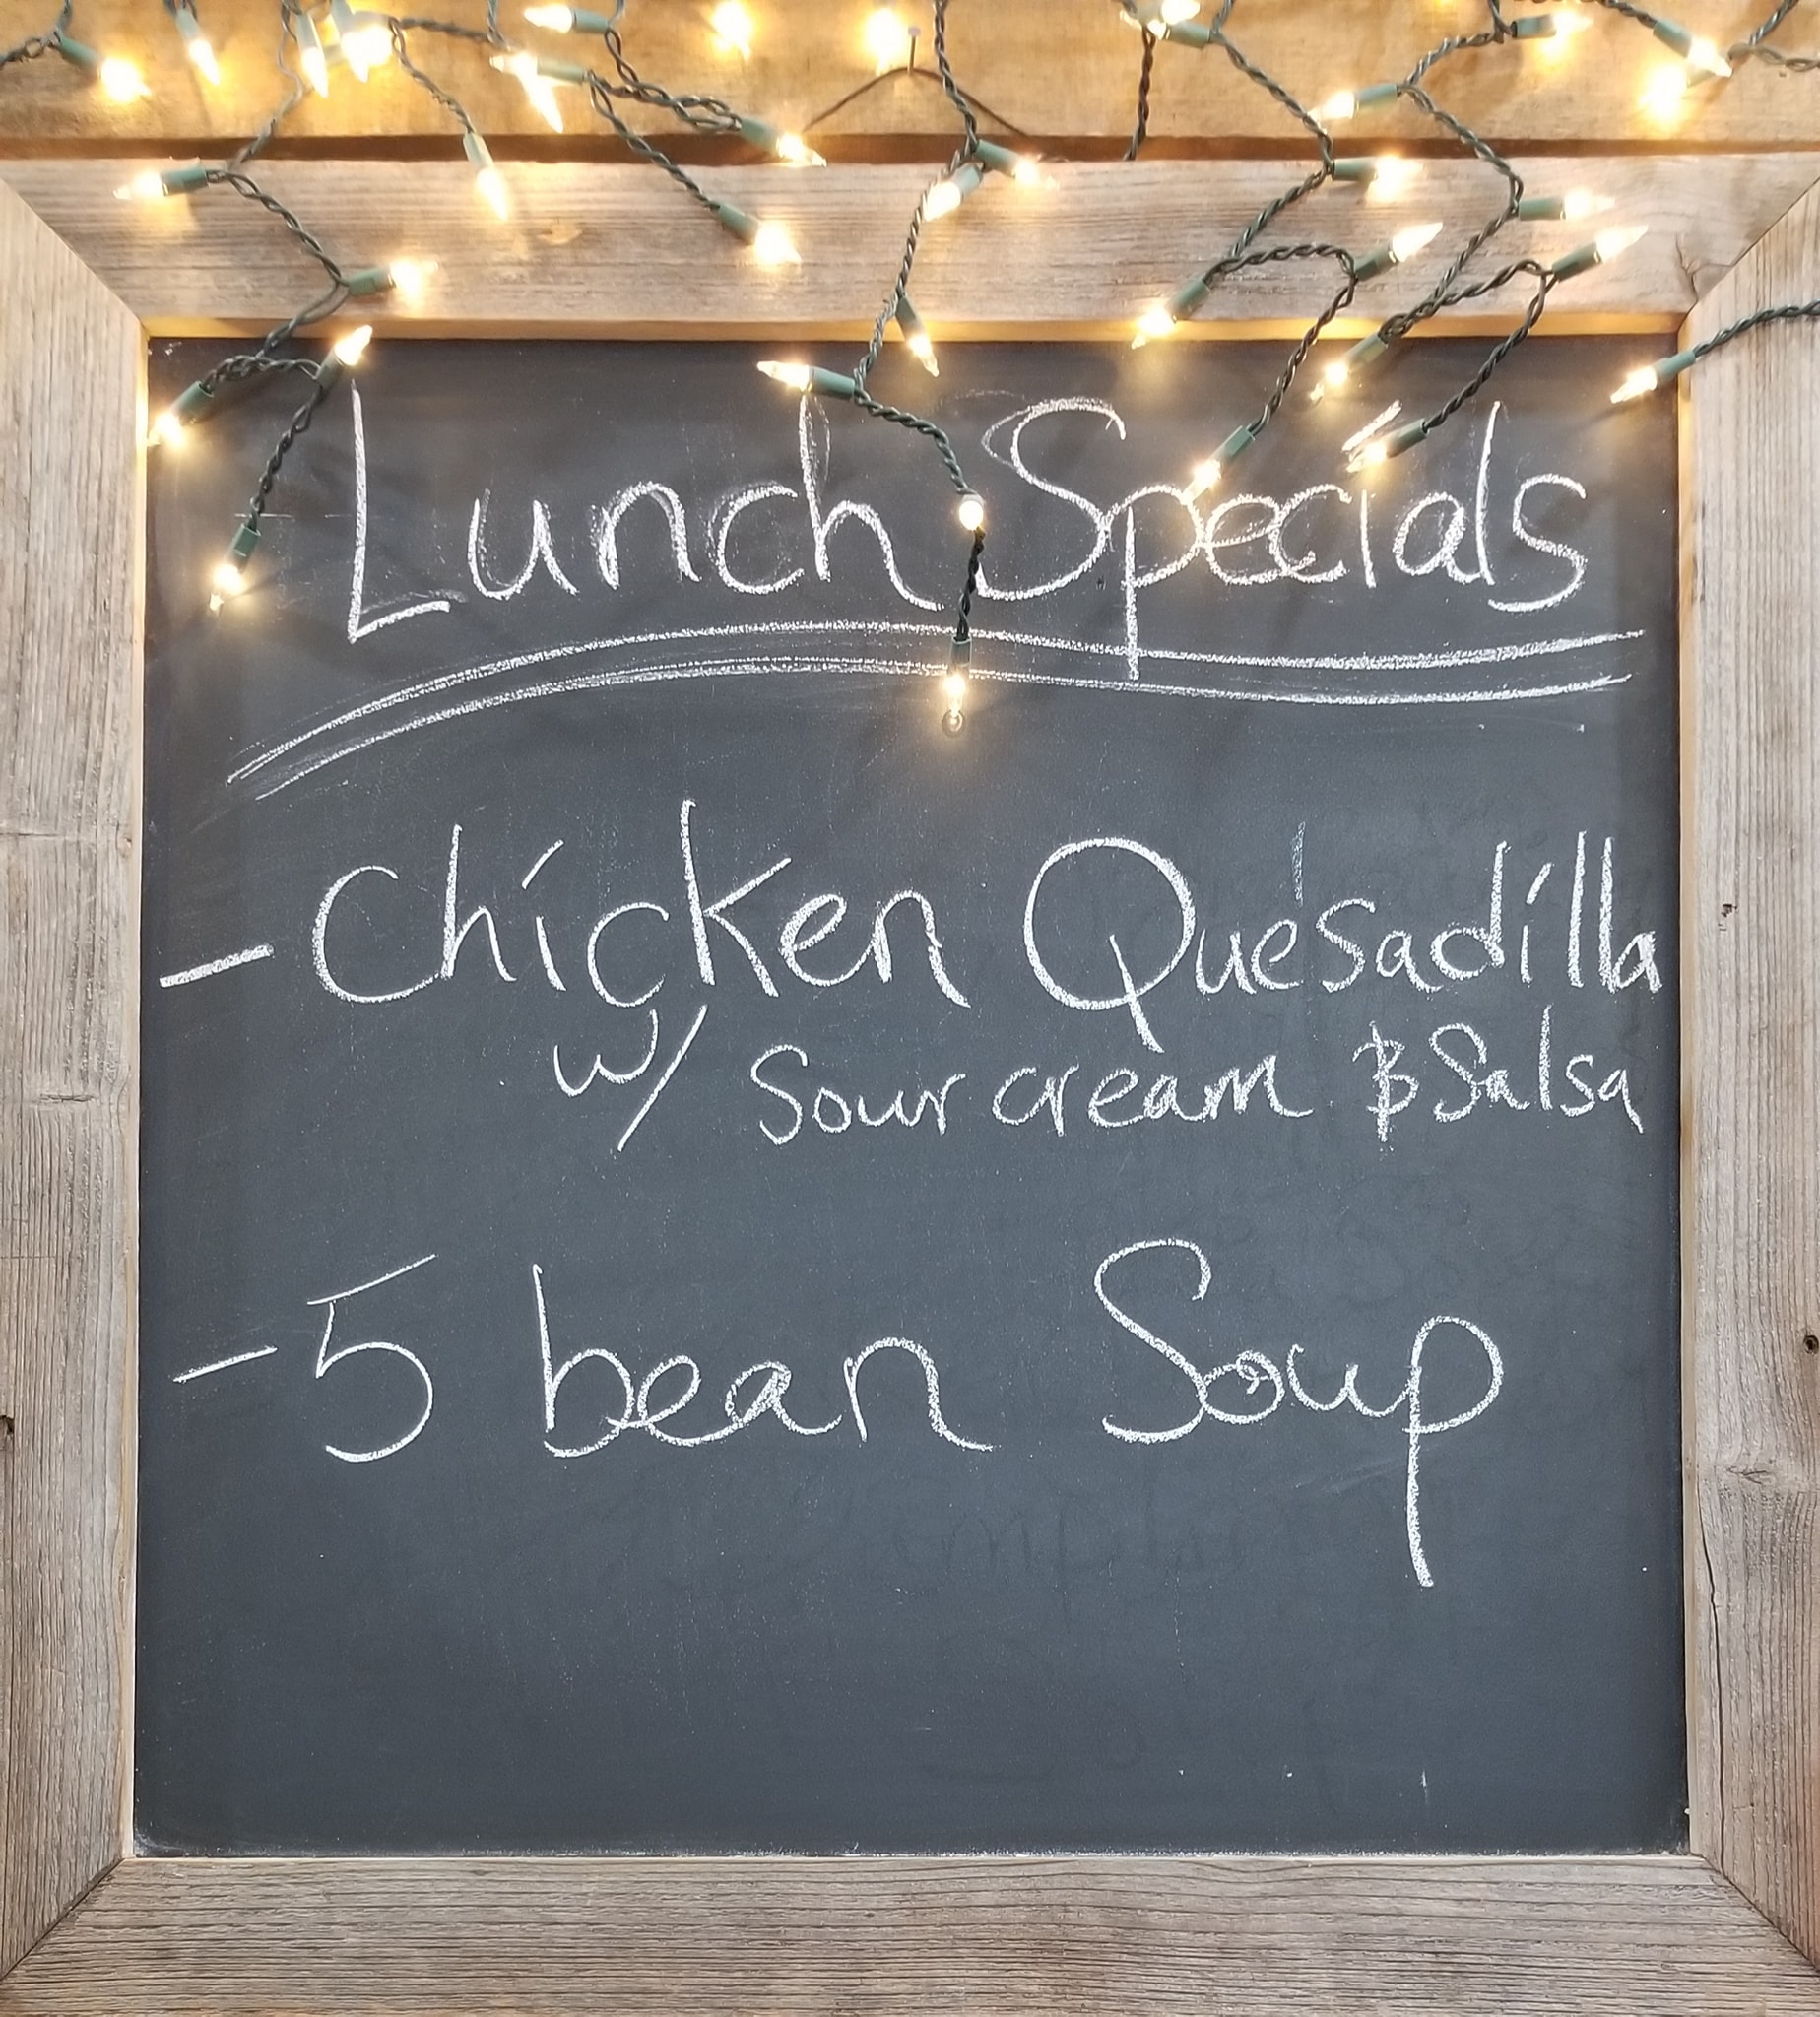 Lunch Specials
- Chicken Quesadilla
w/ Sour cream & Salsa
- 5 bean Soup